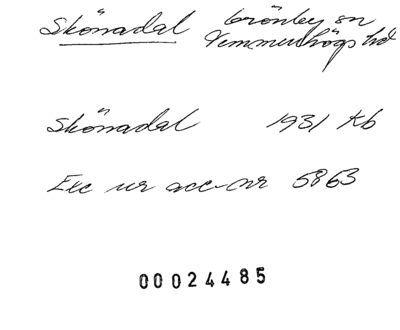 Skönadal Grönby sn
Vemmenhögs hd
Skönadal 1931 Kb
Exc ur acc-nr 5863
00024485